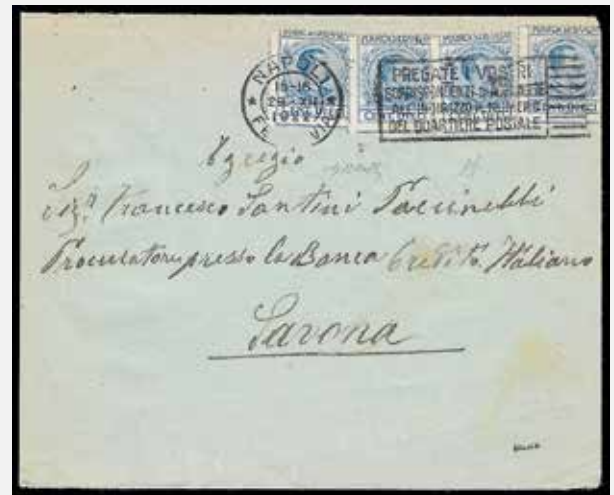 MARCA DA BOLLO
NAPOLI
15-16
28·XII
1922
FERROVIA
PREGATE I VOSTRI
CORRISPONDENTI D'AGGIUNGERE
ALL'INDIRIZZO IL NUMERO
DEL QUARTIERE POSTALE
Egregio
Sig. Francesco Santini
Procuratore presso la Banca Credito Italiano
Savona